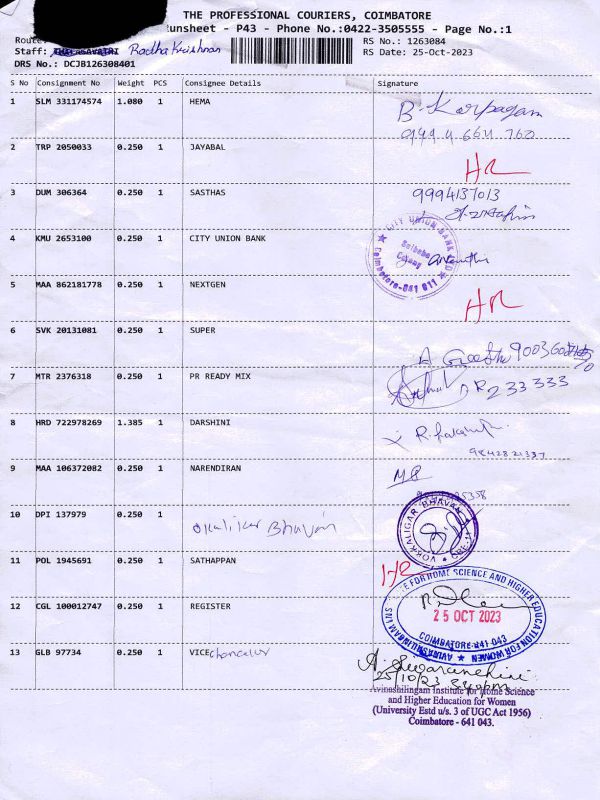 THE PROFESSIONAL COURIERS, COIMBATORE
unsheet - P43 - Phone No.:0422-3505555 - Page No.:1
Route RS No.: 1263084
Staff: Radha Krishnan RS Date: 25-Oct-2023
DRS No.: DCJB126308401
S No Consignment No Weight PCS Consignee Details Signature
1 SLM 331174574 1.080 1 HEMA B. Karpagam
2 TRP 2050033 0.250 1 JAYABAL HR
3 DUM 306364 0.250 1 SASTHAS 9994137013
4 KMU 2653100 0.250 1 CITY UNION BANK
CITY UNION BANK LTD
Saibaba Colony
Coimbatore-641 011
5 MAA 862181778 0.250 1 NEXTGEN HR
6 SVK 20131081 0.250 1 SUPER A Geetha
7 MTR 2376318 0.250 1 PR READY MIX 233333
8 HRD 722978269 1.385 1 DARSHINI
9842821337
9 MAA 106372082 0.250 1 NARENDIRAN
10 DPI 137979 0.250 1 Okalikar Bhavan
VOKKALIGAR BHAVAN
11 POL 1945691 0.250 1 SATHAPPAN HR
12 CGL 100012747 0.250 1 REGISTER
FOR HOME SCIENCE AND HIGHER EDUCATION FOR WOMEN
25 OCT 2023
COIMBATORE-641 043
13 GLB 97734 0.250 1 VICE chancellor
25/10/23 3.40pm
Avinashilingam Institute for Home Science
and Higher Education for Women
(University Estd u/s. 3 of UGC Act 1956)
Coimbatore - 641 043.